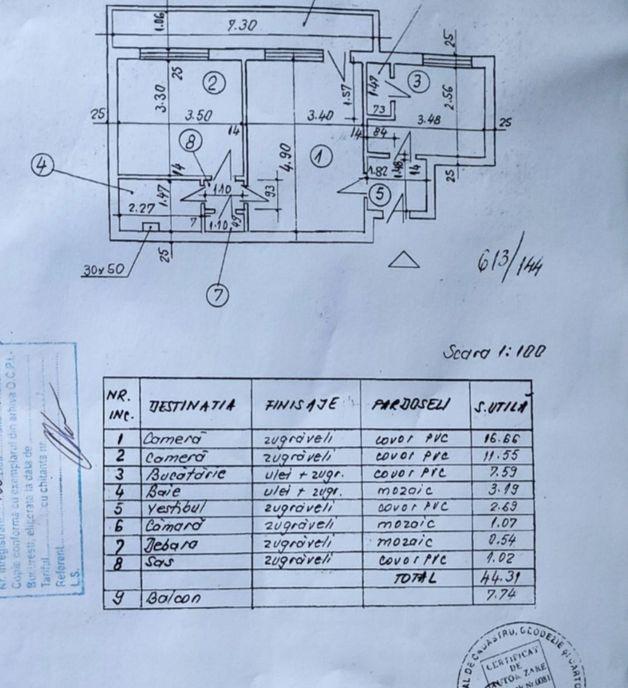 1.06
7.30
25
25
2
3.30
3.50
25
14
8
3.40
1.57
14
1.47
3
2.56
73
3.48
84
25
4
14
1.47
1.10
93
4.90
1
1.82
1.48
14
5
25
2.27
7
1.10
49
30x50
25
7
613/144
Scara 1:100
NR. INC. DESTINATIA FINISAJE PARDOSELI S.UTILĂ
1 Cameră zugrăveli covor PVC 16.66
2 Cameră zugrăveli covor PVC 11.55
3 Bucătărie ulei + zugr. covor PVC 7.59
4 Baie ulei + zugr. mozaic 3.19
5 Vestibul zugrăveli covor PVC 2.69
6 Cămară zugrăveli mozaic 1.07
7 Debara zugrăveli mozaic 0.54
8 Sas zugrăveli covor PVC 1.02
TOTAL 44.31
9 Balcon 7.74
Copie conformă cu exemplarul din arhiva O.C.P.I.
Bucureşti, eliberată la data de
Tariful cu chitanţa nr.
Referent
L.S.
DE CADASTRU, GEODEZIE ŞI CARTO
CERTIFICAT
DE
AUTORIZARE